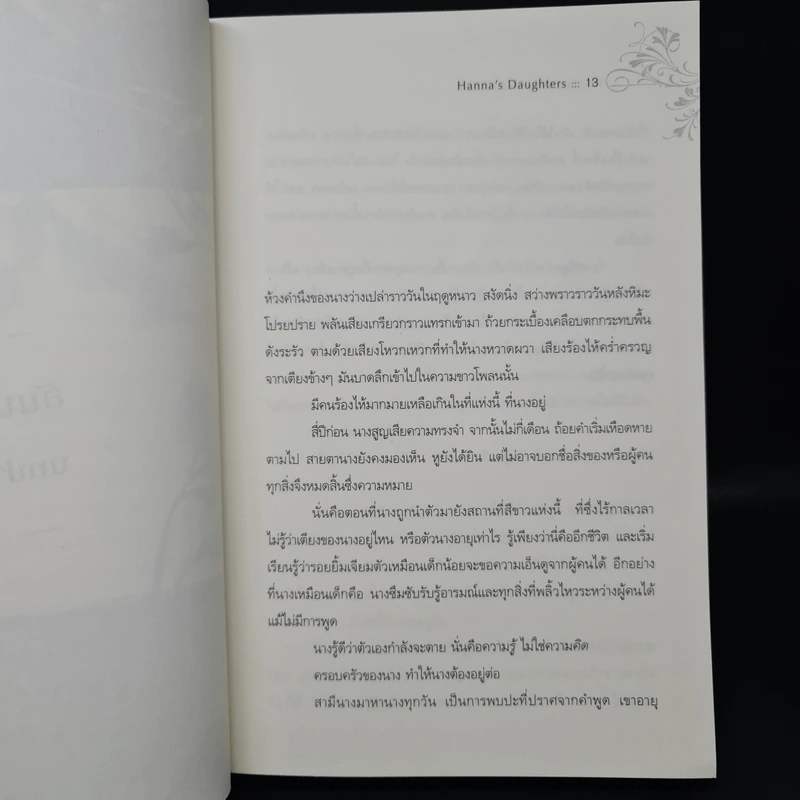 Hanna's Daughters ::: 13
ห้วงคำนึงของนางว่างเปล่าราววันในฤดูหนาว สงัดนิ่ง สว่างพราวราววันหลังหิมะ
โปรยปราย พลันเสียงเกรียวกราวแทรกเข้ามา ถ้วยกระเบื้องเคลือบตกกระทบพื้น
ดังระรัว ตามด้วยเสียงโหวกเหวกที่ทำให้นางหวาดผวา เสียงร้องไห้คร่ำครวญ
จากเตียงข้างๆ มันบาดลึกเข้าไปในความขาวโพลนนั้น
มีคนร้องไห้มากมายเหลือเกินในที่แห่งนี้ ที่นางอยู่
สี่ปีก่อน นางสูญเสียความทรงจำ จากนั้นไม่กี่เดือน ถ้อยคำเริ่มเหือดหาย
ตามไป สายตานางยังคงมองเห็น หูยังได้ยิน แต่ไม่อาจบอกชื่อสิ่งของหรือผู้คน
ทุกสิ่งจึงหมดสิ้นซึ่งความหมาย
นั่นคือตอนที่นางถูกนำตัวมายังสถานที่สีขาวแห่งนี้ ที่ซึ่งไร้กาลเวลา
ไม่รู้ว่าเตียงของนางอยู่ไหน หรือตัวนางอายุเท่าไร รู้เพียงว่านี่คืออีกชีวิต และเริ่ม
เรียนรู้ว่ารอยยิ้มเจียมตัวเหมือนเด็กน้อยจะขอความเอ็นดูจากผู้คนได้ อีกอย่าง
ที่นางเหมือนเด็กคือ นางซึมซับรับรู้อารมณ์และทุกสิ่งที่พลิ้วไหวระหว่างผู้คนได้
แม้ไม่มีการพูด
นางรู้ดีว่าตัวเองกำลังจะตาย นั่นคือความรู้ ไม่ใช่ความคิด
ครอบครัวของนาง ทำให้นางต้องอยู่ต่อ
สามีนางมาหานางทุกวัน เป็นการพบปะที่ปราศจากคำพูด เขาอายุ